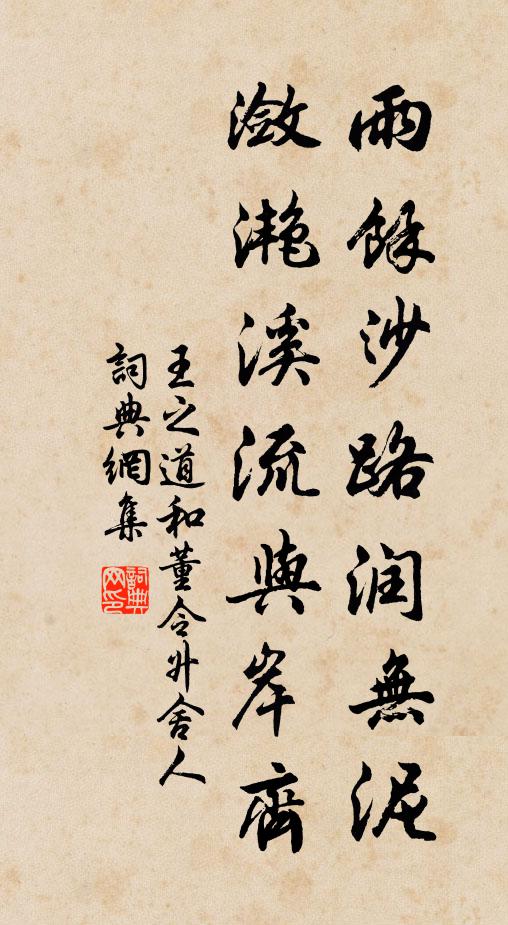 雨餘沙路潤無泥
瀲灧溪流與岸齊
王之道和董令升舍人
詞典網集
詞典網印